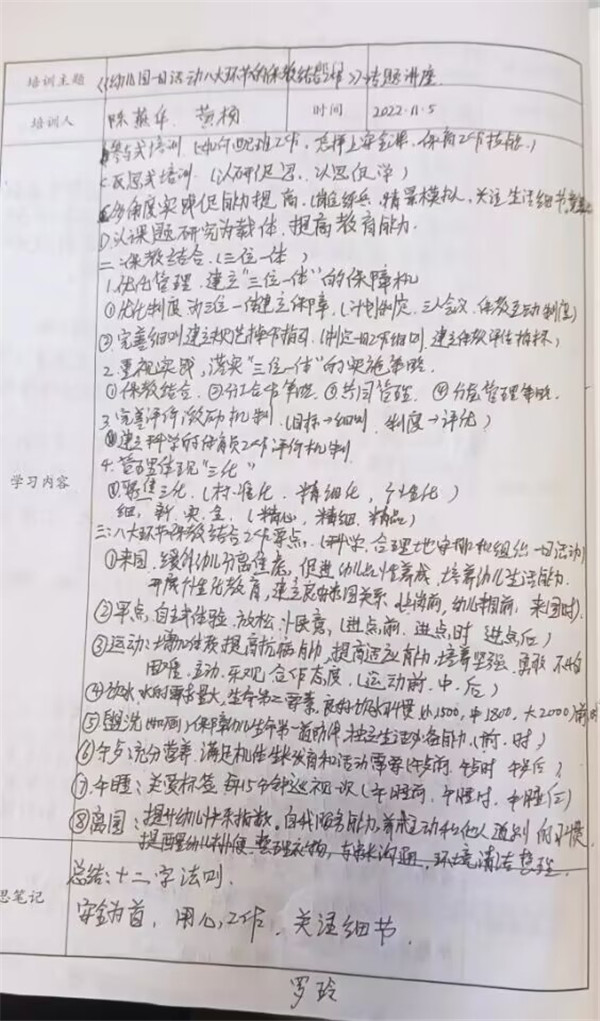 培训主题 《幼儿园一日活动八大环节的保教结合》专题讲座
培训人 陈 黄杨 时间 2022.11.5
参与式培训.(如何配班工作,怎样上安全课,保育工作技能.)
C反思式培训.(以研促思.以思促学)
多角度实践促能力提高.(岗位练兵,情景模拟,关注生活细节
D.以课题研究为载体.提高教育能力.
二.保教结合.(三位一体)
1.优化管理.建立"三位一体"的保障机
①优化制度 三位一体建立保障.(计划制定.三人会议.保教互动制度)
②.完善细则 建立规范操作指引.(制定一日工作细则.建立保教评估指标)
2.重视实践,落实"三位一体"的实施策略.
①保教结合.②分工合作策略.③共同管理.④分层管理策略.
3.完善评价激励机制.(目标→细则.制度→评优)
建立科学的保育员工作评价机制
4.管理体现"三化"
①.聚焦三化.(标准化.精细化,个性化)
细,新,实,全.(精心,精细.精品)
三:八大环节保教结合工作要点.(科学,合理地安排和组织一日活动)
①来园.缓解幼儿分离焦虑,促进幼儿个性养成,培养幼儿生活能力.
开展个性化教育,建立良好家园关系.(上岗前,幼儿来园前.来园时).
②早点,自主体验.放松.小惬意,(进点前.进点时 进点后)
③运动:增加体质提高抗病能力,提高适应能力,培养坚强.勇敢 不怕
困难.主动.乐观.合作态度.(运动前.中.后)
④饮水,水的需求量大,生命第二要素,良好饮水习惯 小1500,中1800.大2000)前.时
⑤盥洗(如厕):保障幼儿生命第一道防线,独立生活必备能力.(前.时)
⑥午点:充分营养.满足机体生长发育和活动需要(午点前.午点时 午点后)
⑦.午睡:关爱标签.每15分钟巡视一次(午睡前,午睡时.午睡后)
⑧离园:提升幼儿快乐指数,自我服务能力,养成主动和他人道别的习惯.
提醒幼儿排便.整理衣物,与家长沟通,环境清洁整理.
学习内容
思笔记
总结:十二字法则.
安全为首,用心工作.关注细节.
罗玲